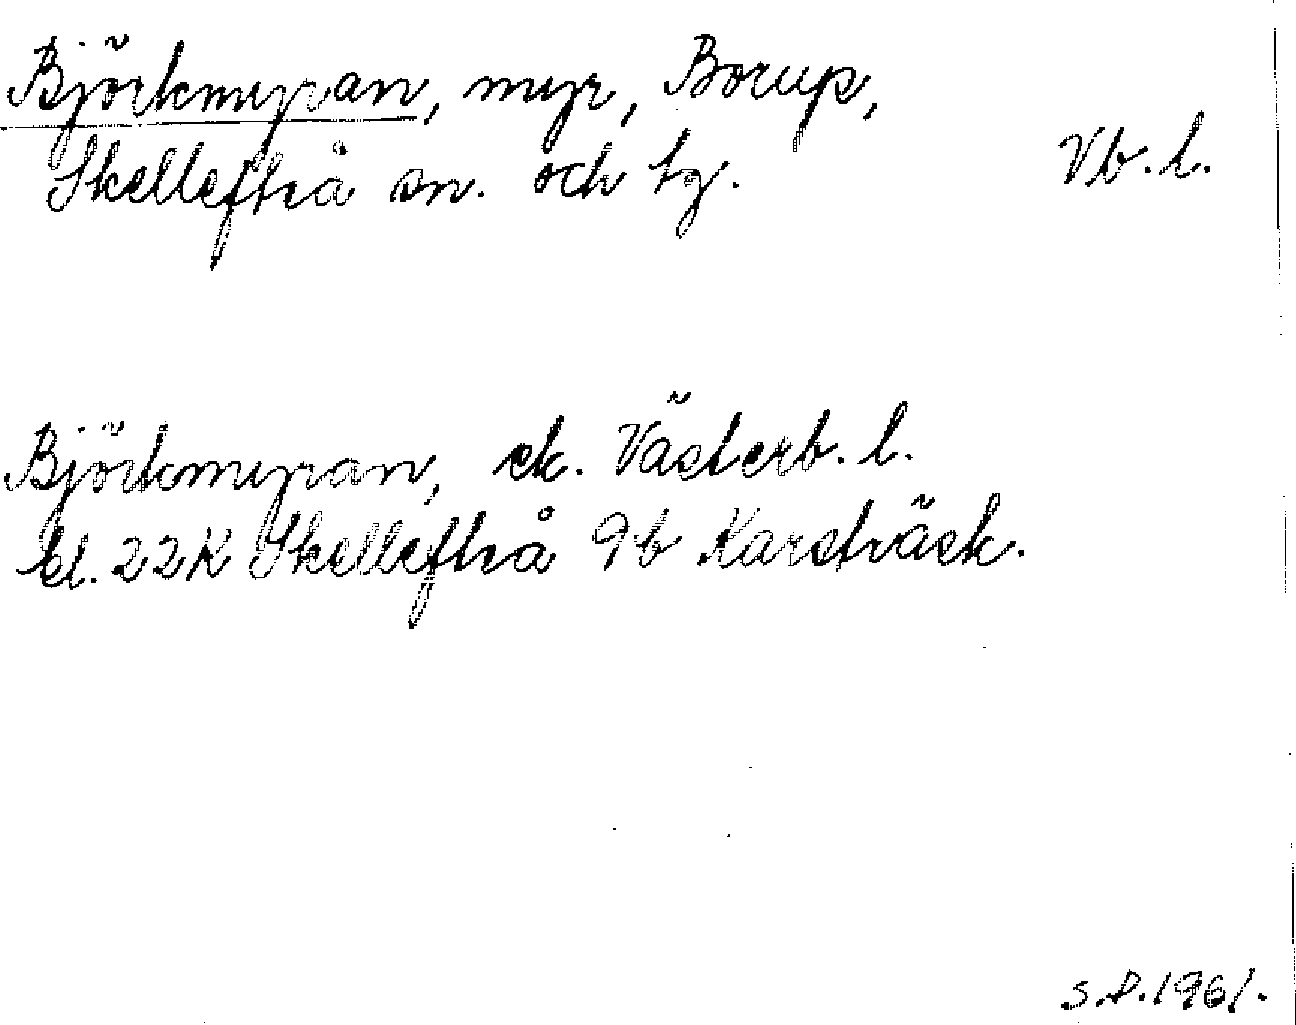 Björkmyran, myr, Borup,
Skellefteå sn. och tg. Vb. l.
Björkmyran, ek. Västerb. l.
bl. 22K Skellefteå 9b Karsträsk.
S.P. 1961.